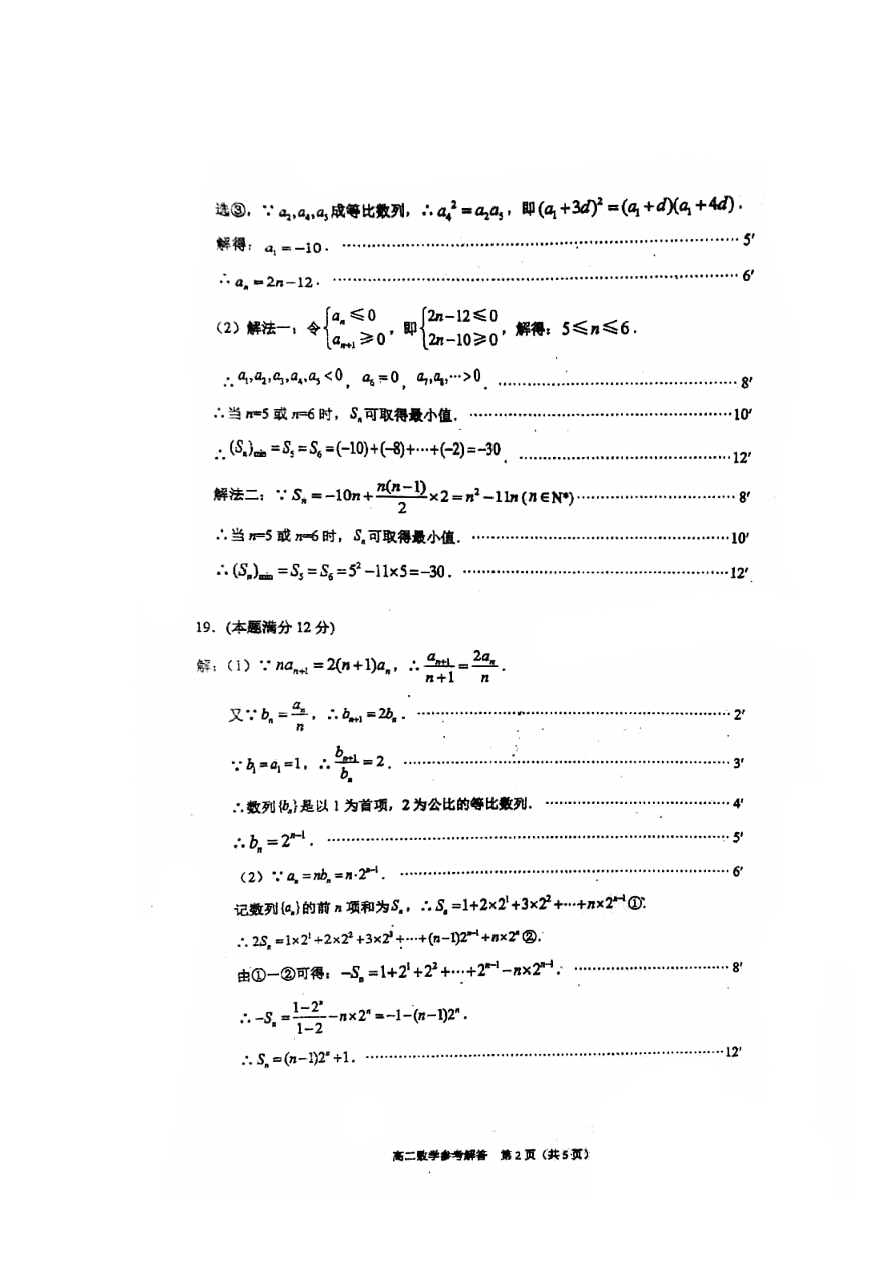 选③，∵a₂,a₄,a₅成等比数列，∴a₄²=a₂a₅，即(a₁+3d)²=(a₁+d)(a₁+4d)．
解得：a₁=-10．……5′
∴aₙ=2n-12．……6′
（2）解法一：令{aₙ≤0, aₙ₊₁≥0，即{2n-12≤0, 2n-10≥0，解得：5≤n≤6．
∴a₁,a₂,a₃,a₄,a₅<0，a₆=0，a₇,a₈,…>0．……8′
∴当n=5或n=6时，Sₙ可取得最小值．……10′
∴(Sₙ)min=S₅=S₆=(-10)+(-8)+…+(-2)=-30．……12′
解法二：∵Sₙ=-10n+n(n-1)/2×2=n²-11n(n∈N*)……8′
∴当n=5或n=6时，Sₙ可取得最小值．……10′
∴(Sₙ)min=S₅=S₆=5²-11×5=-30．……12′
19．(本题满分12分)
解：（1）∵naₙ₊₁=2(n+1)aₙ，∴aₙ₊₁/(n+1)=2aₙ/n．
又∵bₙ=aₙ/n，∴bₙ₊₁=2bₙ．……2′
∵b₁=a₁=1，∴bₙ₊₁/bₙ=2．……3′
∴数列{bₙ}是以1为首项，2为公比的等比数列．……4′
∴bₙ=2ⁿ⁻¹．……5′
（2）∵aₙ=nbₙ=n·2ⁿ⁻¹．……6′
记数列{aₙ}的前n项和为Sₙ，∴Sₙ=1+2×2¹+3×2²+…+n×2ⁿ⁻¹①．
∴2Sₙ=1×2¹+2×2²+3×2³+…+(n-1)2ⁿ⁻¹+n×2ⁿ②．
由①－②可得：-Sₙ=1+2¹+2²+…+2ⁿ⁻¹-n×2ⁿ⁻¹．……8′
∴-Sₙ=(1-2ⁿ)/(1-2)-n×2ⁿ=-1-(n-1)2ⁿ．
∴Sₙ=(n-1)2ⁿ+1．……12′
高二数学参考解答 第2页（共5页）